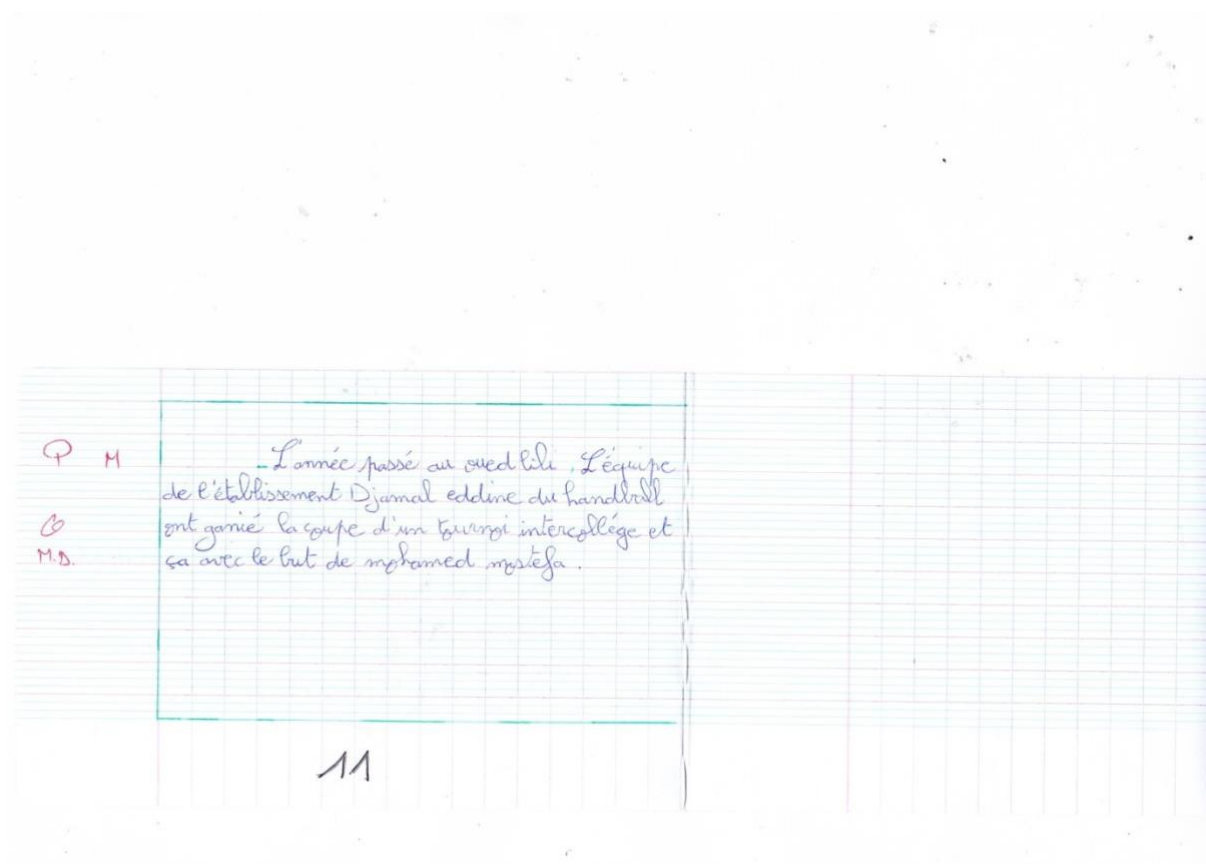 P M - L'année passé au oued lili. L'équipe
de l'établissement Djamal eddine du handball
O ont ganié la coupe d'un tournoi intercollége et
M.D. ça avec le but de mohamed mostefa.
11